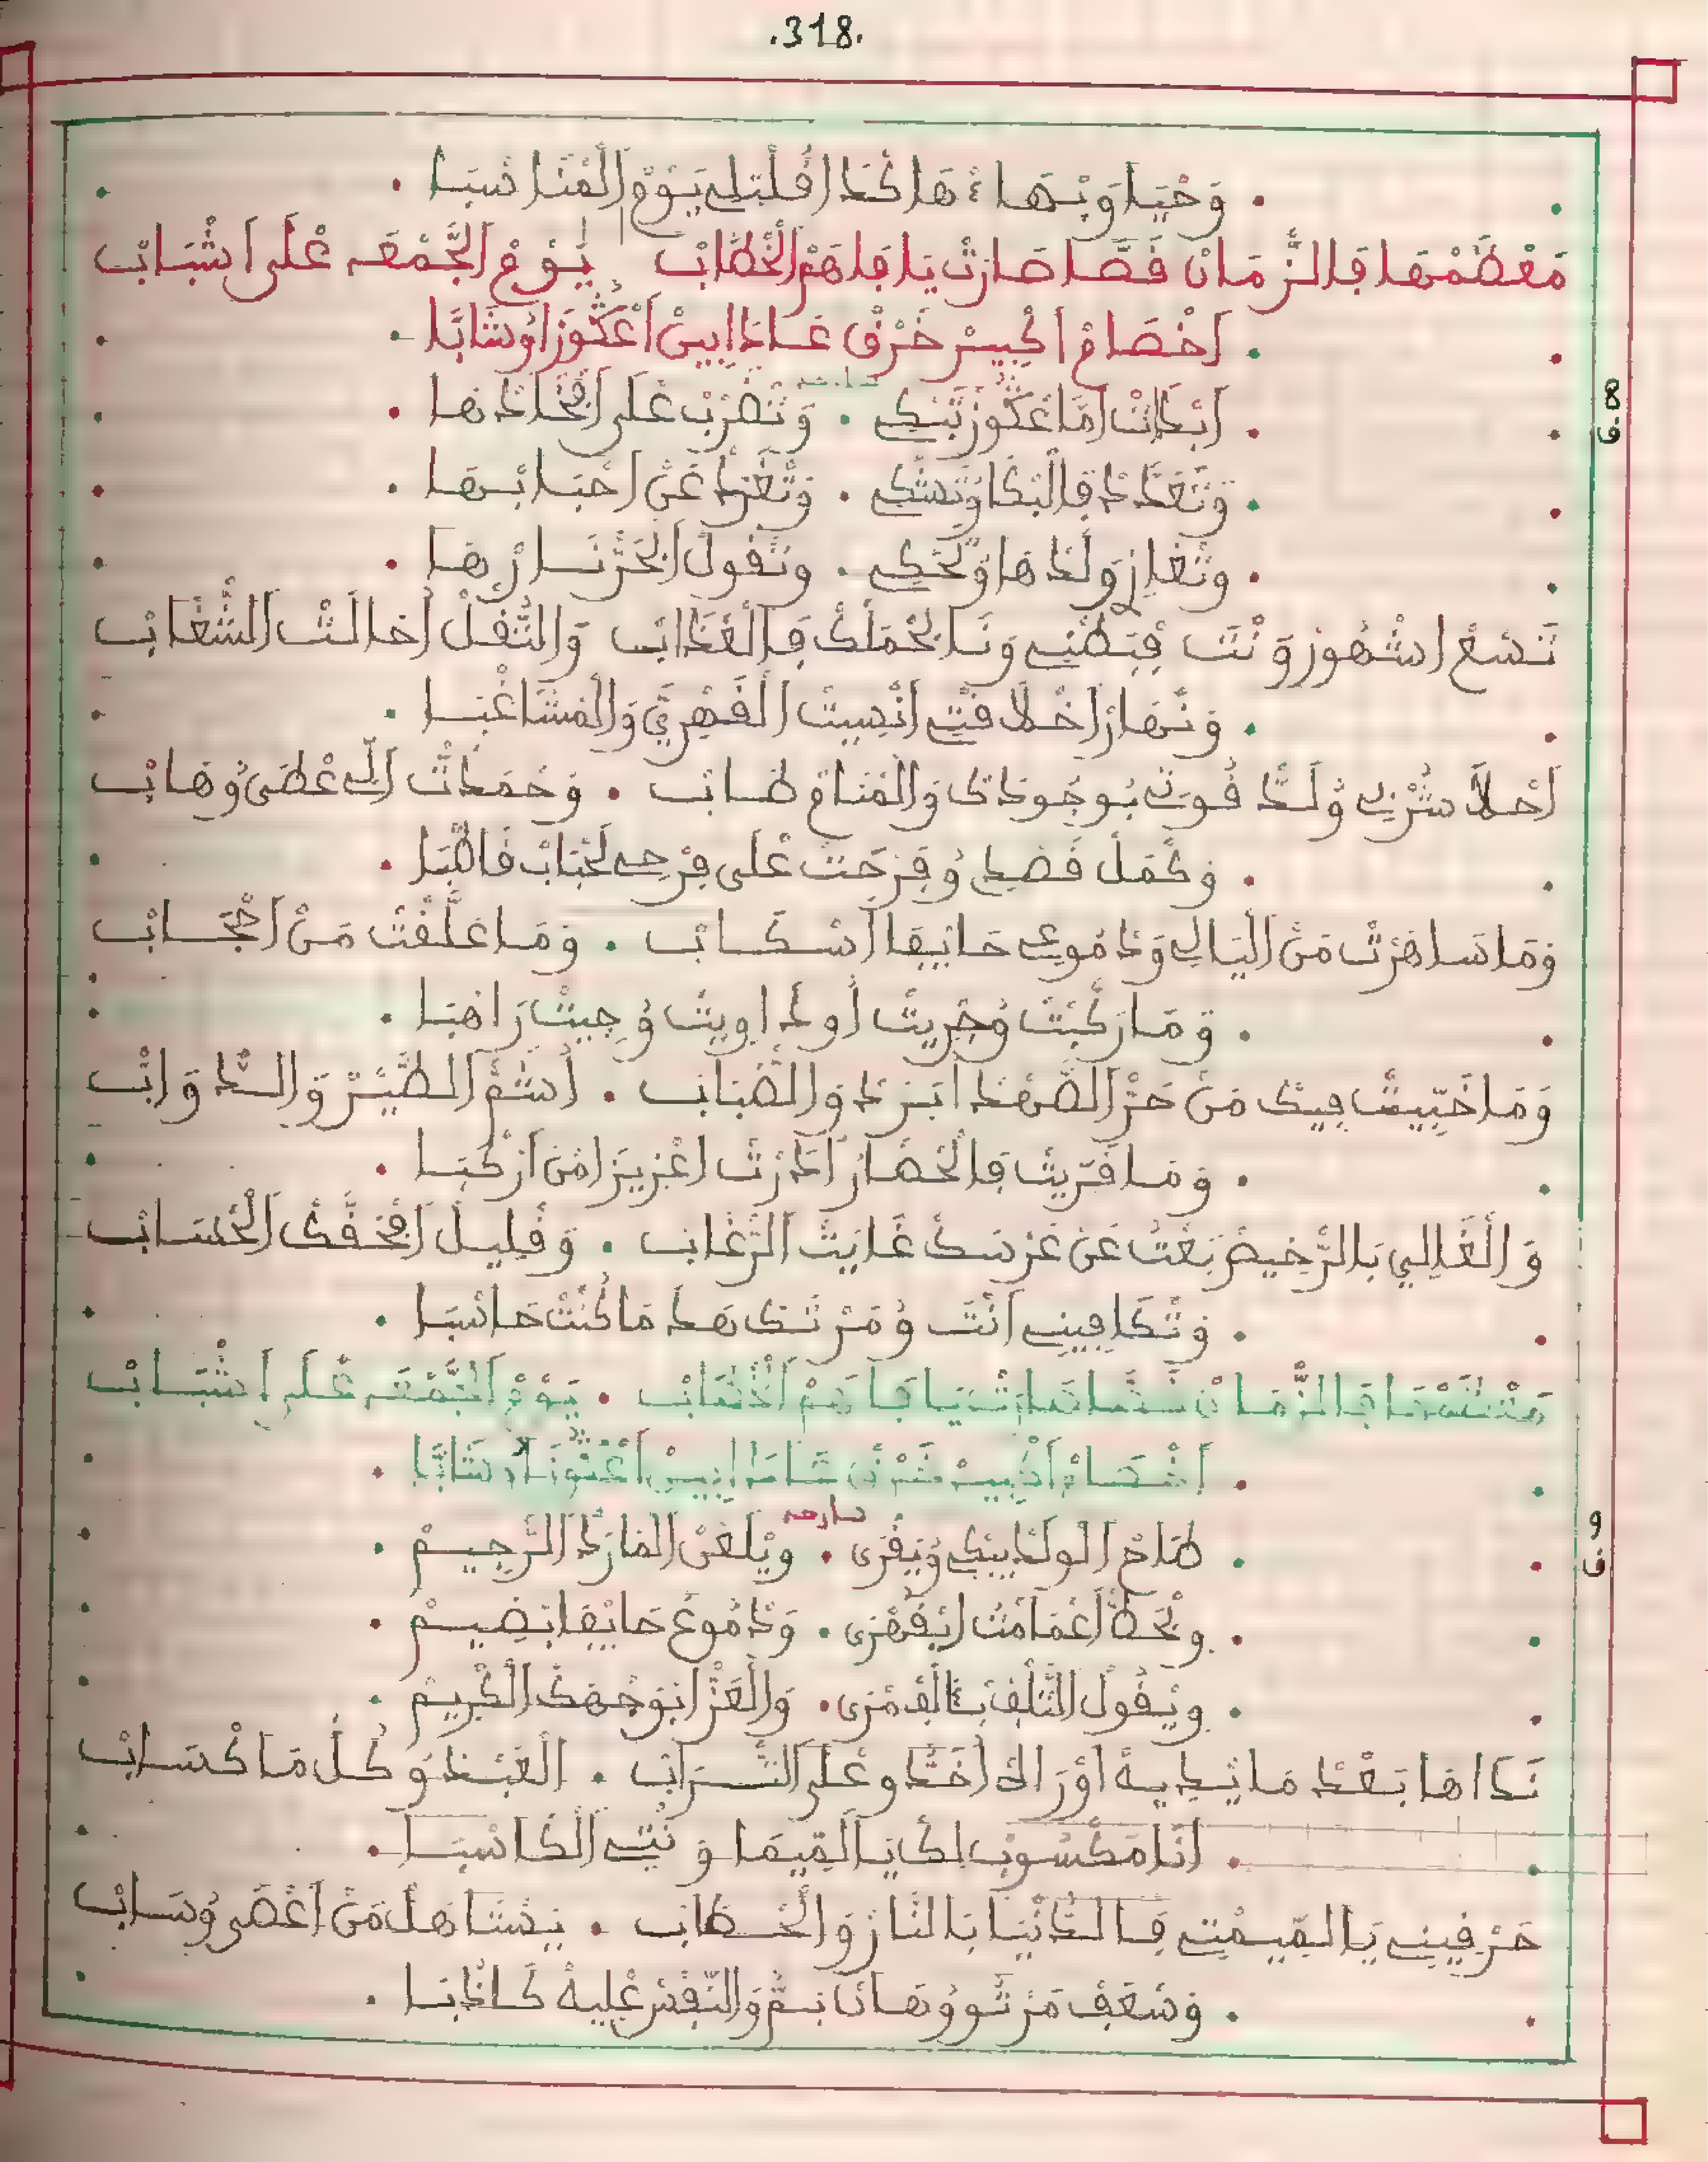 .318.
وَحْيَا وَبْهَاءْ هَاكْدَا افْلْبْلِي يَوْمْ الْمْنَاسْبَا
مَعْظَمْهَا فَالزّْمَانْ قَصَّا صَارَتْ يَا فَاهَمْ الَخْطَابْ يَوْمْ الْجَمْعَه عْلَى اشْبَابْ
اخْصَامْ الْبِيرْ خَرْقْ عَادَا ابِينْ اعْكُوزَا وْشَابَّا
ابْدَاتْ امَّا عَكُّوزْ تَبْكِي . وَتَضْرَبْ عْلَى افْخَادْهَا
وَتْعَدَّدْ فَالْبْكَا وْتَشْكِي . وَتْغَرَّدْ عَنْ احْبَابْهَا
وَتْعَايَرْ وَلْدْهَا وْتَحْكِي . وَتْقُولْ الْجَرْنَارْهَا
تَسْعْ اشْهُورْ وَنْتَ فْبَطْنِي وَنَا نَحْمَلَكْ فَالْعْدَابْ وَالتّْقَلْ اخَالَتْ الشّْغَابْ
وَنْهَارْ اخْلَاقْتِي انْسِيتْ الْقَهْرِيَّ وَالْمْشَاغْبَا
احْلَا شْرْبِي وُلَدّْ قُوتِي بُوجُودَكْ وَالْمْنَامْ طَابْ . وَحْمَدْتْ الِّي عْطَى وُهَابْ
وَكْمَلْ قَصْدِي وُفْرَحْتْ عْلَى فِرْحِي لَحْبَابْ قَاطْبَا
وَمَا سَاهَرْتْ مَنْ الْيَالِي وَدْمُوعِي حَايْفَا اسْكَابْ . وَمَا عَلَّقْتْ مَنْ احْجَابْ
وَمَا رَكْبَتْ وُجْرِيتْ أو دَاوِيتْ وُجِيتْ رَاهْبَا
وَمَا خَبِّيتْ فِيكْ مَنْ حَرّْ الصَّهْدْ ابَرْدْ وَالضّْبَابْ . اسْمْ الطَّيْرْ وَالدّْوَابْ
وَمَا قَرِّيتْ فَالْحْضَارْ ادَرْتْ اعْزِيزْ امْنْ ارْكْبَا
وَالْغَالِي بَالرّْخِيصْ بَعْتْ عَنْ عَرْسَكْ غَايَتْ الرّْغَابْ . وَقْلِيلْ افْحَقَّكْ الْحْسَابْ
وَتْكَافِينِي انْتَ وُمَرْتَكْ هَدْ مَا كُنْتْ حَاسْبَا
مَعْظَمْهَا فَالزّْمَانْ قَصَّا صَارَتْ يَا فَاهَمْ الَخْطَابْ . يَوْمْ الْجَمْعَه عْلَى اشْبَابْ
اخْصَامْ الْبِيرْ خَرْقْ عَادَا ابِينْ اعْكُوزَا وْشَابَّا
طَاحْ الْوَلْدْ يِبْكِي وُيَقْرَى . وِيْلَعْنْ الْمَارَدْ الرّْجِيمْ
وِنْحَطّْ اعْمَامْتُ ايْقَهْرَى . وَدْمُوعُ حَايْفَا ابْضِيمْ
وِيْقُولْ التّْلْفْ بَالْفْمْرَى . وَالْعَزّْ ابْوَجْهَكْ الْكْرِيمْ
نَدَاهَا بَعْدْ مَا ثْدِيهْ اوْرَاكْ اخَدُّو عْلَى التّْرَابْ . الْعْبَدْ وُ كُلّْ مَا كْسَابْ
انَا مَكْسُوبْ لَكْ يَا الْمِّيمَا وَنْتِي الْكَاسْبَا
حَرْقِينِي يَا الْمِّيمْتِي فَالدُّنْيَا بَالنَّارْ وَالْحْطَابْ . يَسْتَاهَلْ مَنْ اعْصَى وُسَابْ
وَسْعَفْ مَرْتُو وُهَانَا نَمّْ وَالنَّفْسْ عْلِيهْ كَادْبَا